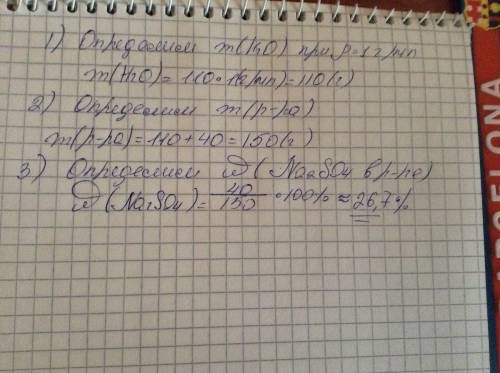 1) Определим m(H2O) при ρ=1 г/мл
m(H2O) = 110 · 1(г/мл) = 110 (г)
2) Определим m(р-ра)
m(р-ра) = 110 + 40 = 150 (г)
3) Определим ω (Na2SO4 в р-ре)
ω (Na2SO4) = 40/150 · 100% ≈ 26,7%
ARCELONA